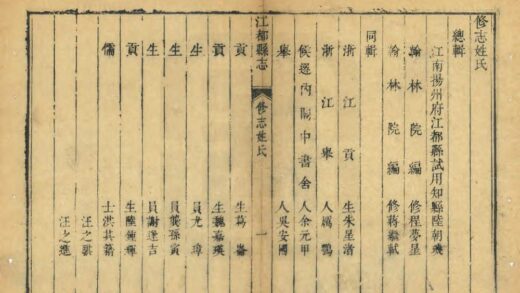 修志姓氏
總輯
江南揚州府江都縣試用知縣陸朝璣
翰林院編修程夢星
翰林院編修蔣繼軾
同輯
浙江貢生朱星渚
浙江舉人馮鸚
候選內閣中書舍人余元甲
舉人吳安國
江都縣志
修志姓氏
一
貢生葛崙
貢生魏嘉瑛
生員尤璋
生員龔孫寅
生員謝逢吉
貢生陸鍾輝
儒士洪其簵
汪之淇
汪之進